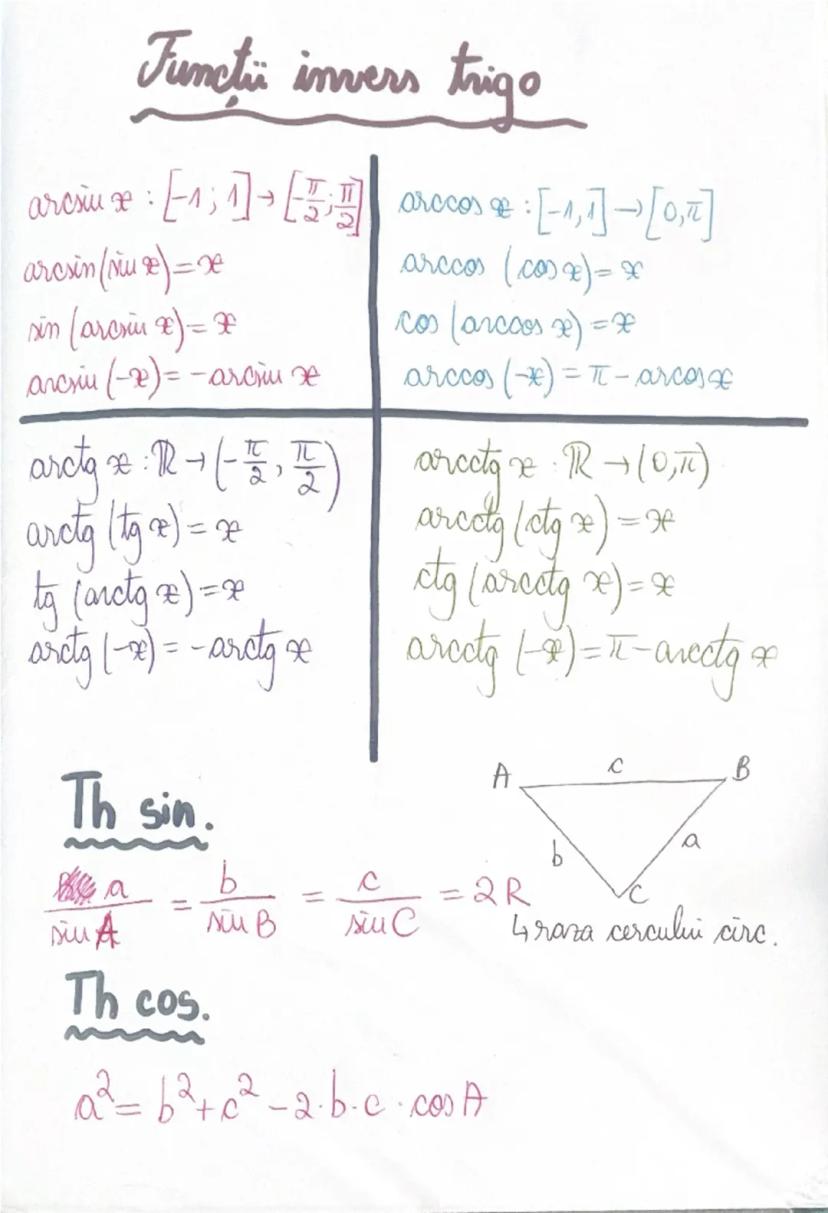 Funcții invers trigo
arcsin x : [-1 ; 1] → [-π/2 ; π/2]
arcsin (sin x) = x
sin (arcsin x) = x
arcsin (-x) = - arcsin x
arccos x : [-1, 1] → [0, π]
arccos (cos x) = x
cos (arccos x) = x
arccos (-x) = π - arcosx
arctg x : ℝ → (-π/2 , π/2)
arctg (tg x) = x
tg (arctg x) = x
arctg (-x) = - arctg x
arcctg x : ℝ → (0, π)
arcctg (ctg x) = x
ctg (arcctg x) = x
arcctg (-x) = π - arcctg x
Th sin.
A c B
b a
C
a/sin A = b/sin B = c/sin C = 2R
↳ raza cercului circ.
Th cos.
a² = b² + c² - 2·b·c·cos A